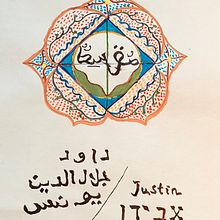 داود
جلال الدين
يونس
/
Justin
אבידן